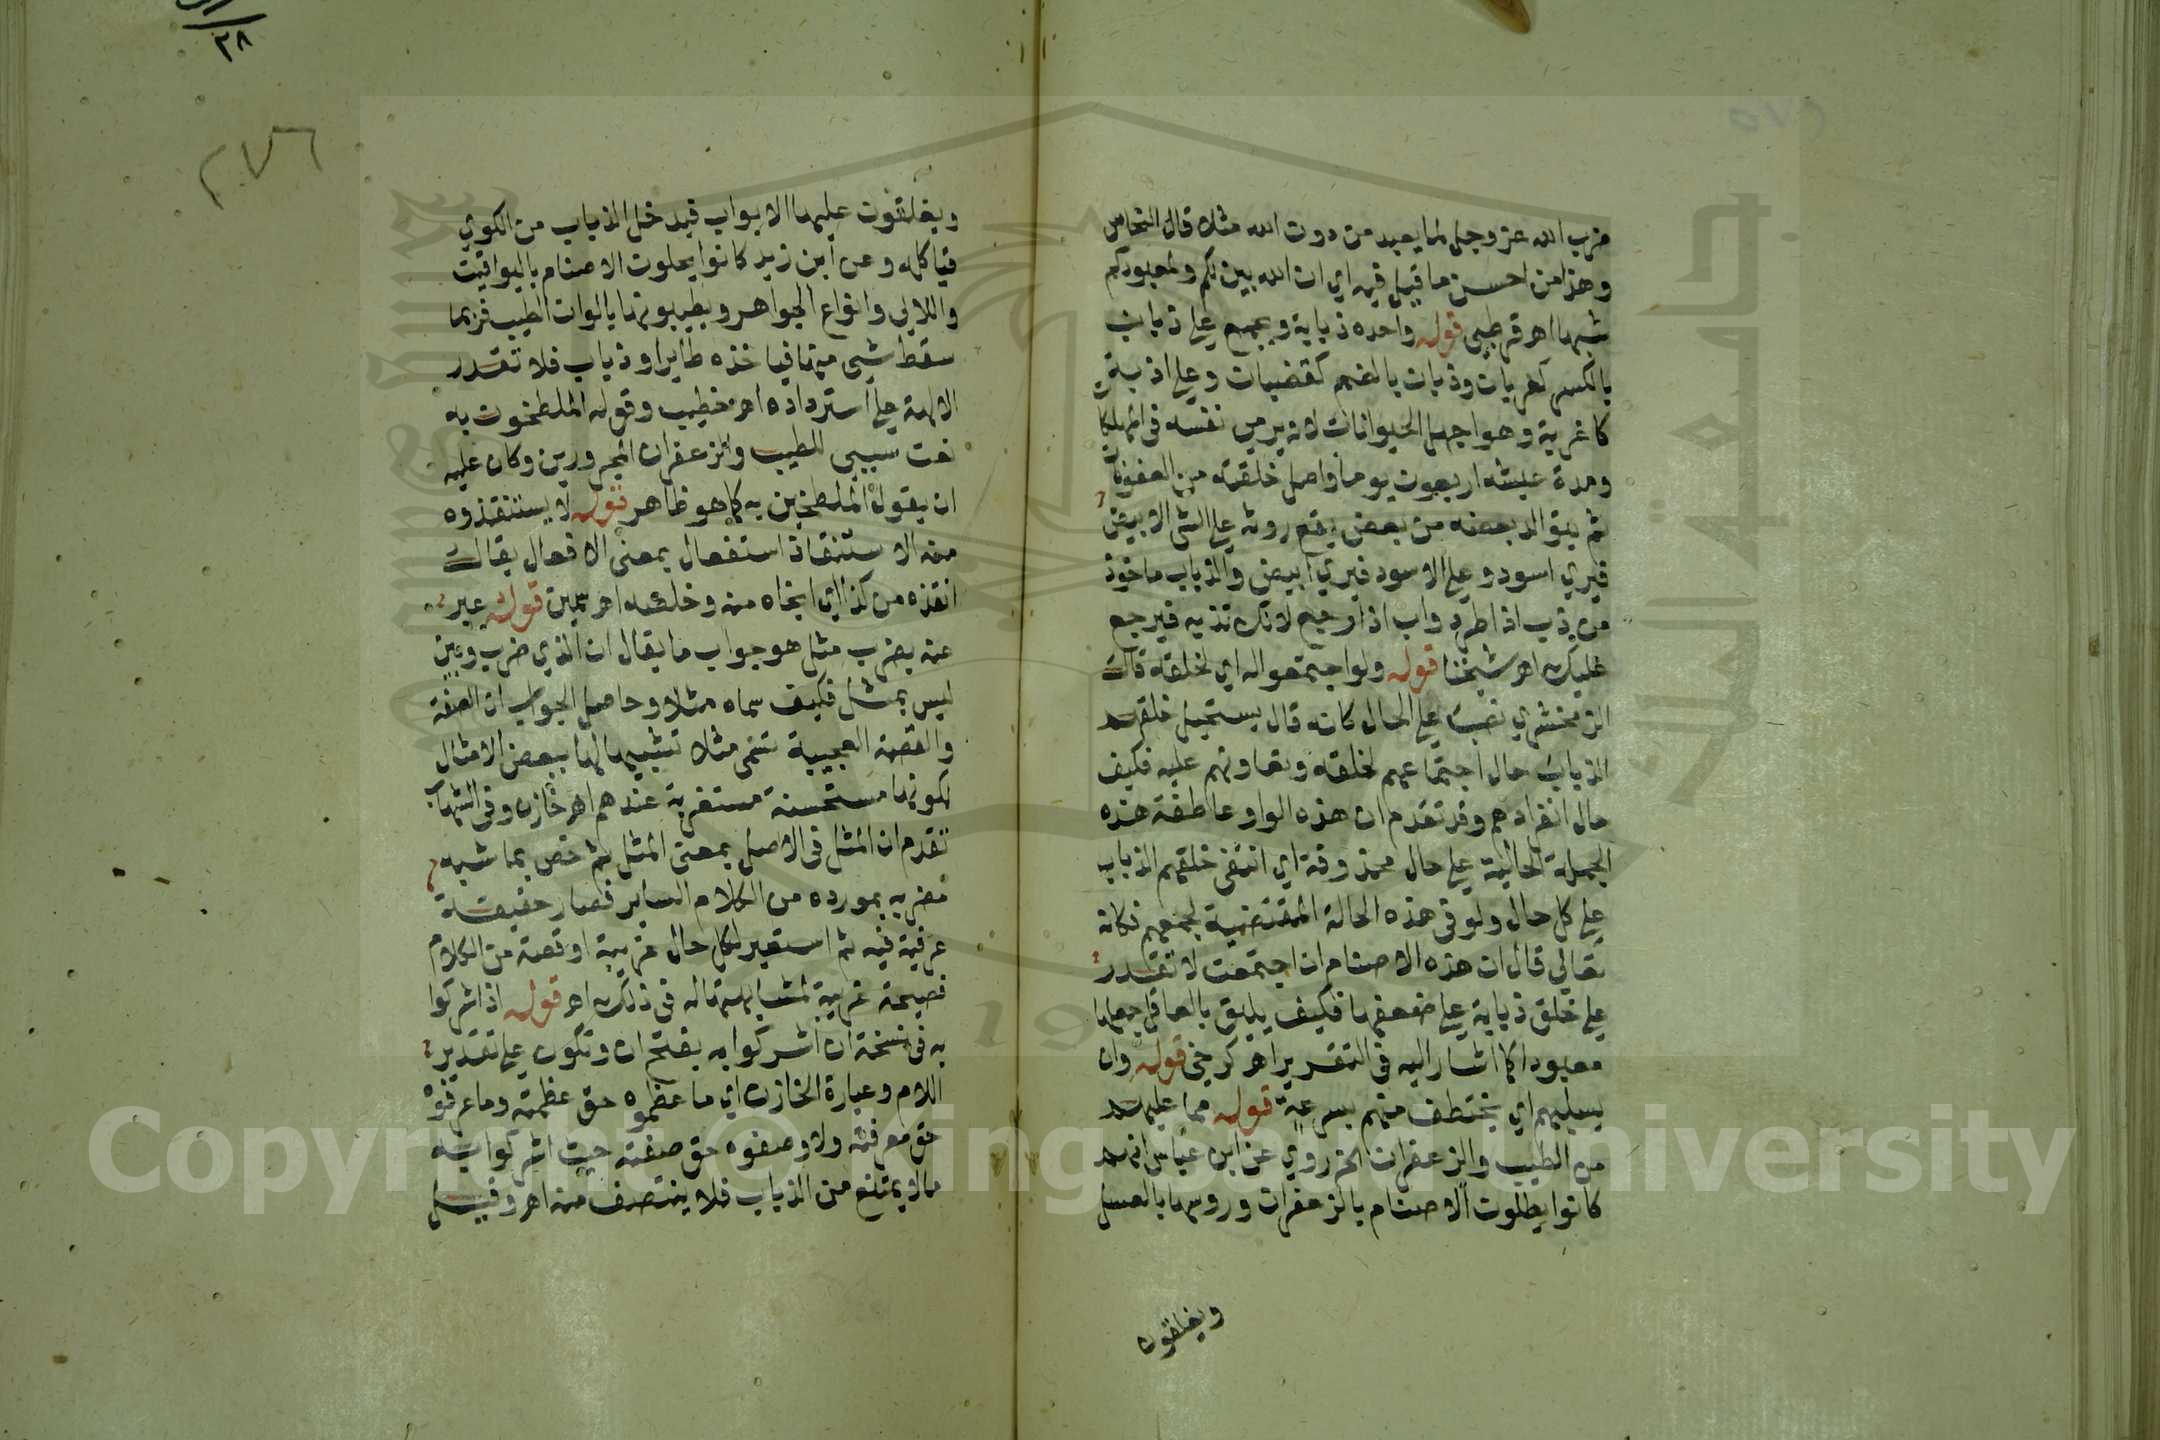 ضرب الله عز وجل لما يعبد من دون الله مثلا قال النحاس
وهذا من احسن ما قيل فيه اي ان الله بين لكم ولمعبودكم
شبها اهر قرطبي قوله واحده ذبابة ويجمع على ذبان
بالكسر كغربان وذبان بالضم كقضبان وعلى اذبة
كاغربة وهو اجهل الحيوانات لانه يرمي نفسه في المهلكات
ومدة عيشه اربعون يوما واصل خلقته من العفونة
ثم يتوالد بعضه من بعض يقع روثه على الشي الابيض
فيري اسود وعلى الاسود فيري ابيض والذباب ماخوذ
من ذب اذا طرد واب اذا رجع لانك تذبه فيرجع
عليك اهر شيخنا قوله ولو اجتمعوا له اي لخلقه قال
الزمخشري نصب على الحال كانه قال يستحيل خلقهم
الذباب حال اجتماعهم لخلقه وتعاونهم عليه فكيف
حال انفرادهم وقد تقدم ان هذه الواو عاطفة هذه
الجملة الحالية على حال محذوفة اي انتفى خلقهم الذباب
على كل حال ولو في هذه الحالة المقتضية لجمعهم فكانه
تعالي قال ان هذه الاصنام ان اجتمعت لا تقدر
على خلق ذبابة على ضعفها فكيف يليق بالعاقل جعلها
معبودا كما اشار اليه في التقرير اهر كرخي قوله وان
يسلبهم اي يختطف منهم بسرعة قوله مما عليهم
من الطيب والزعفران الخ روي عن ابن عباس انهم
كانوا يطلون الاصنام بالزعفران وروسها بالعسل
ويغلقون
٢٧٦
ويغلقون عليها الابواب فيدخل الذباب من الكوي
فياكله وعن ابن زيد كانوا يحلون الاصنام باليواقيت
واللالي وانواع الجواهر ويطيبونها بالوان الطيب فربما
سقط شي منها فياخذه طاير او ذباب فلا تقدر
الالهة على استرداده اهر خطيب وقوله الملطخون به
نعت سببي للطيب والزعفران المجرورين وكان عليه
ان يقول الملطخين به كما هو ظاهر قوله لا يستنقذوه
منه الاستنقاذ استفعال بمعنى الافعال يقال
انقذه من كذا اي انجاه منه وخلصه اهر سمين قوله عبر
عنه بضرب مثل هو جواب ما يقال ان الذي ضرب وبين
ليس بمثل فكيف سماه مثلا وحاصل الجواب ان الصفة
والقصة العجيبة تسمى مثلا تشبيها لها ببعض الامثال
لكونها مستحسنة مستغربة عندهم اهر خازن وفي الشهاب
تقدم ان المثل في الاصل بمعنى المثل ثم خص بما شبه
مضربه بمورده من الكلام الساير فصار حقيقة
عرفية فيه ثم استعير لكل حال غريبة او قصة من الكلام
فصيحة غريبة لمشابهتها له في ذلك اهر قوله اذ اشركوا
به في نسخة ان اشركوا به بفتح ان وتكون على تقدير
اللام وعبارة الخازن اي ما عظموه حق عظمته وما عرفوه
حق معرفته ولا وصفوه حق صفته حيث اشركوا به
مالا يمتنع من الذباب فلا ينتصف منه اهر وقيل